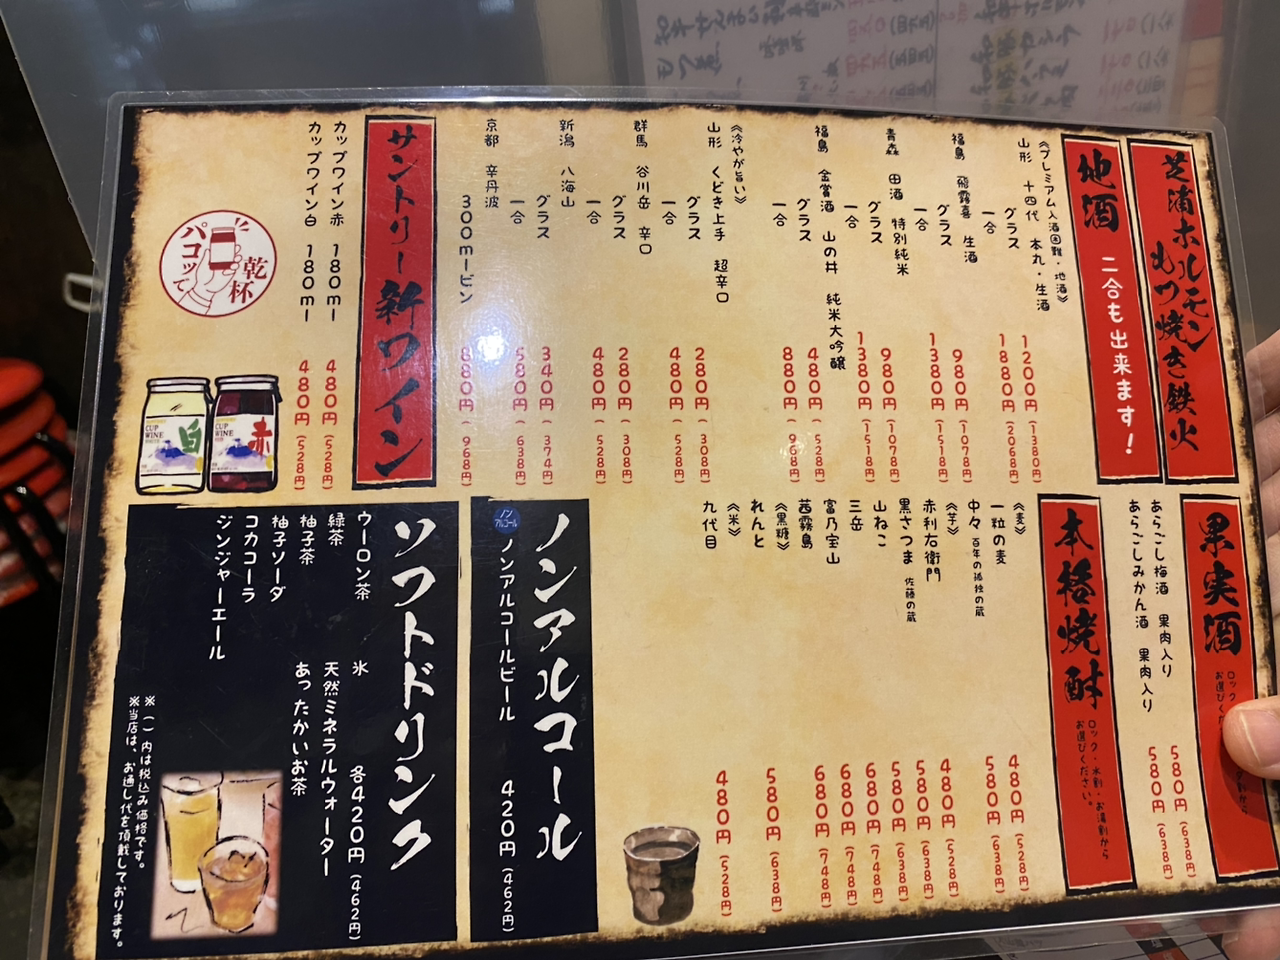 芝浦ホルモン
もつ焼き鉄火
地酒 二合も出来ます!
《プレミアム入酒困難・地酒》
山形 十四代 本丸・生酒
グラス 1200円(1380円)
一合 1880円(2068円)
福島 飛露喜 生酒
グラス 980円(1078円)
一合 1380円(1518円)
青森 田酒 特別純米
グラス 980円(1078円)
一合 1380円(1518円)
福島 金賞酒 山の井 純米大吟醸
グラス 480円(528円)
一合 880円(968円)
《冷やが旨い》
山形 くどき上手 超辛口
グラス 280円(308円)
一合 480円(528円)
群馬 谷川岳 辛口
グラス 280円(308円)
一合 480円(528円)
新潟 八海山
グラス 340円(374円)
一合 580円(638円)
京都 辛丹波
300mlビン 880円(968円)
サントリー新ワイン
カップワイン赤 180ml 480円(528円)
カップワイン白 180ml 480円(528円)
乾杯
パコッて
CUP WINE
白
CUP WINE
赤
果実酒
あらごし梅酒 果肉入り 580円(638円)
あらごしみかん酒 果肉入り 580円(638円)
本格焼酎
ロック・水割・お湯割から
お選びください。
《麦》
一粒の麦 480円(528円)
中々 百年の孤独の蔵 580円(638円)
《芋》
赤利右衛門 480円(528円)
黒さつま 佐藤の蔵 580円(638円)
山ねこ 580円(638円)
三岳 680円(748円)
富乃宝山 680円(748円)
茜霧島 680円(748円)
《黒糖》
れんと 580円(638円)
《米》
九代目 480円(528円)
ノンアルコール
ノンアルコール
ノンアルコールビール 420円(462円)
ソフトドリンク
ウーロン茶
緑茶
柚子茶
柚子ソーダ
コカコーラ
ジンジャーエール
氷
天然ミネラルウォーター
あったかいお茶
各420円(462円)
※( )内は税込み価格です。
※当店は、お通し代を頂戴しております。